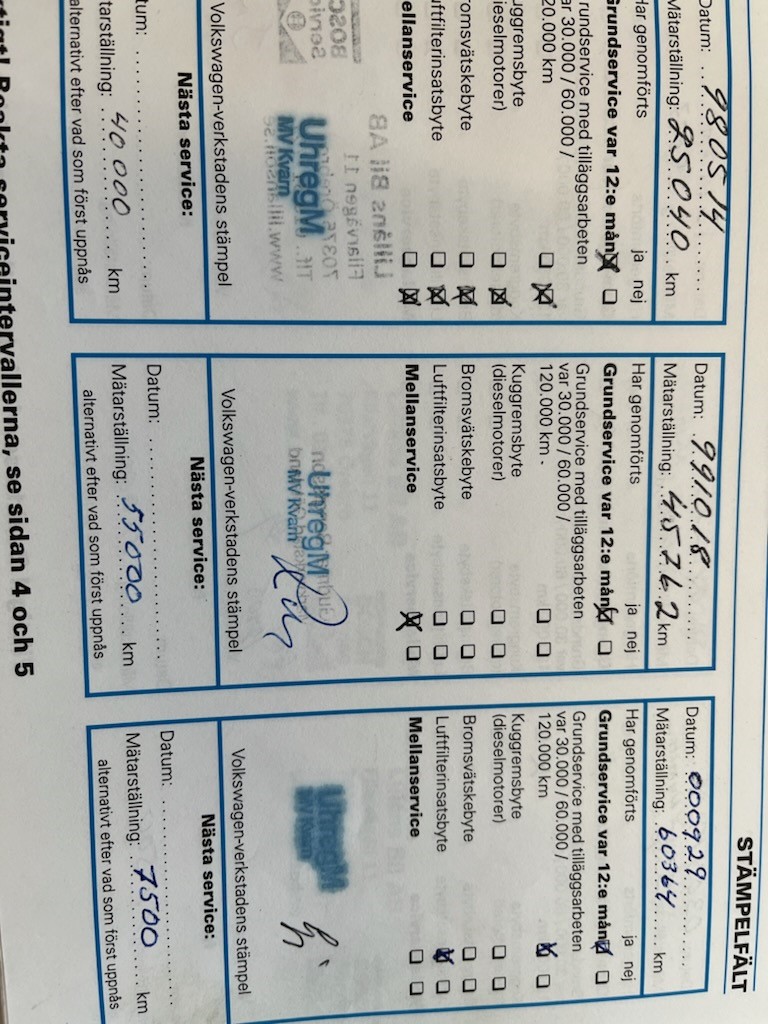 STÄMPELFÄLT
Datum: 980514
Mätarställning: 25040 km
Har genomförts ja nej
Grundservice var 12:e månad
rundservice med tilläggsarbeten
ar 30.000 / 60.000 /
20.000 km
uggremsbyte
ieselmotorer)
omsvätskebyte
uftfilterinsatsbyte
ellanservice
Lillåns Bil AB
Filarvägen 11
UhregM
MV Kvarn
Volkswagen-verkstadens stämpel
Nästa service:
tum:
tarställning: 40 000 km
alternativt efter vad som först uppnås
Datum: 991018
Mätarställning: 45762 km
Har genomförts ja nej
Grundservice var 12:e månad
Grundservice med tilläggsarbeten
var 30.000 / 60.000 /
120.000 km
Kuggremsbyte
(dieselmotorer)
Bromsvätskebyte
Luftfilterinsatsbyte
Mellanservice
UhregM
MV Kvarn
Volkswagen-verkstadens stämpel
Nästa service:
Datum:
Mätarställning: 55000 km
alternativt efter vad som först uppnås
Datum: 000929
Mätarställning: 60364 km
Har genomförts ja nej
Grundservice var 12:e månad
Grundservice med tilläggsarbeten
var 30.000 / 60.000 /
120.000 km
Kuggremsbyte
(dieselmotorer)
Bromsvätskebyte
Luftfilterinsatsbyte
Mellanservice
UhregM
MV Kvarn
Volkswagen-verkstadens stämpel
Nästa service:
Datum:
Mätarställning: 7500 km
alternativt efter vad som först uppnås
tigt! Beakta serviceintervallerna, se sidan 4 och 5